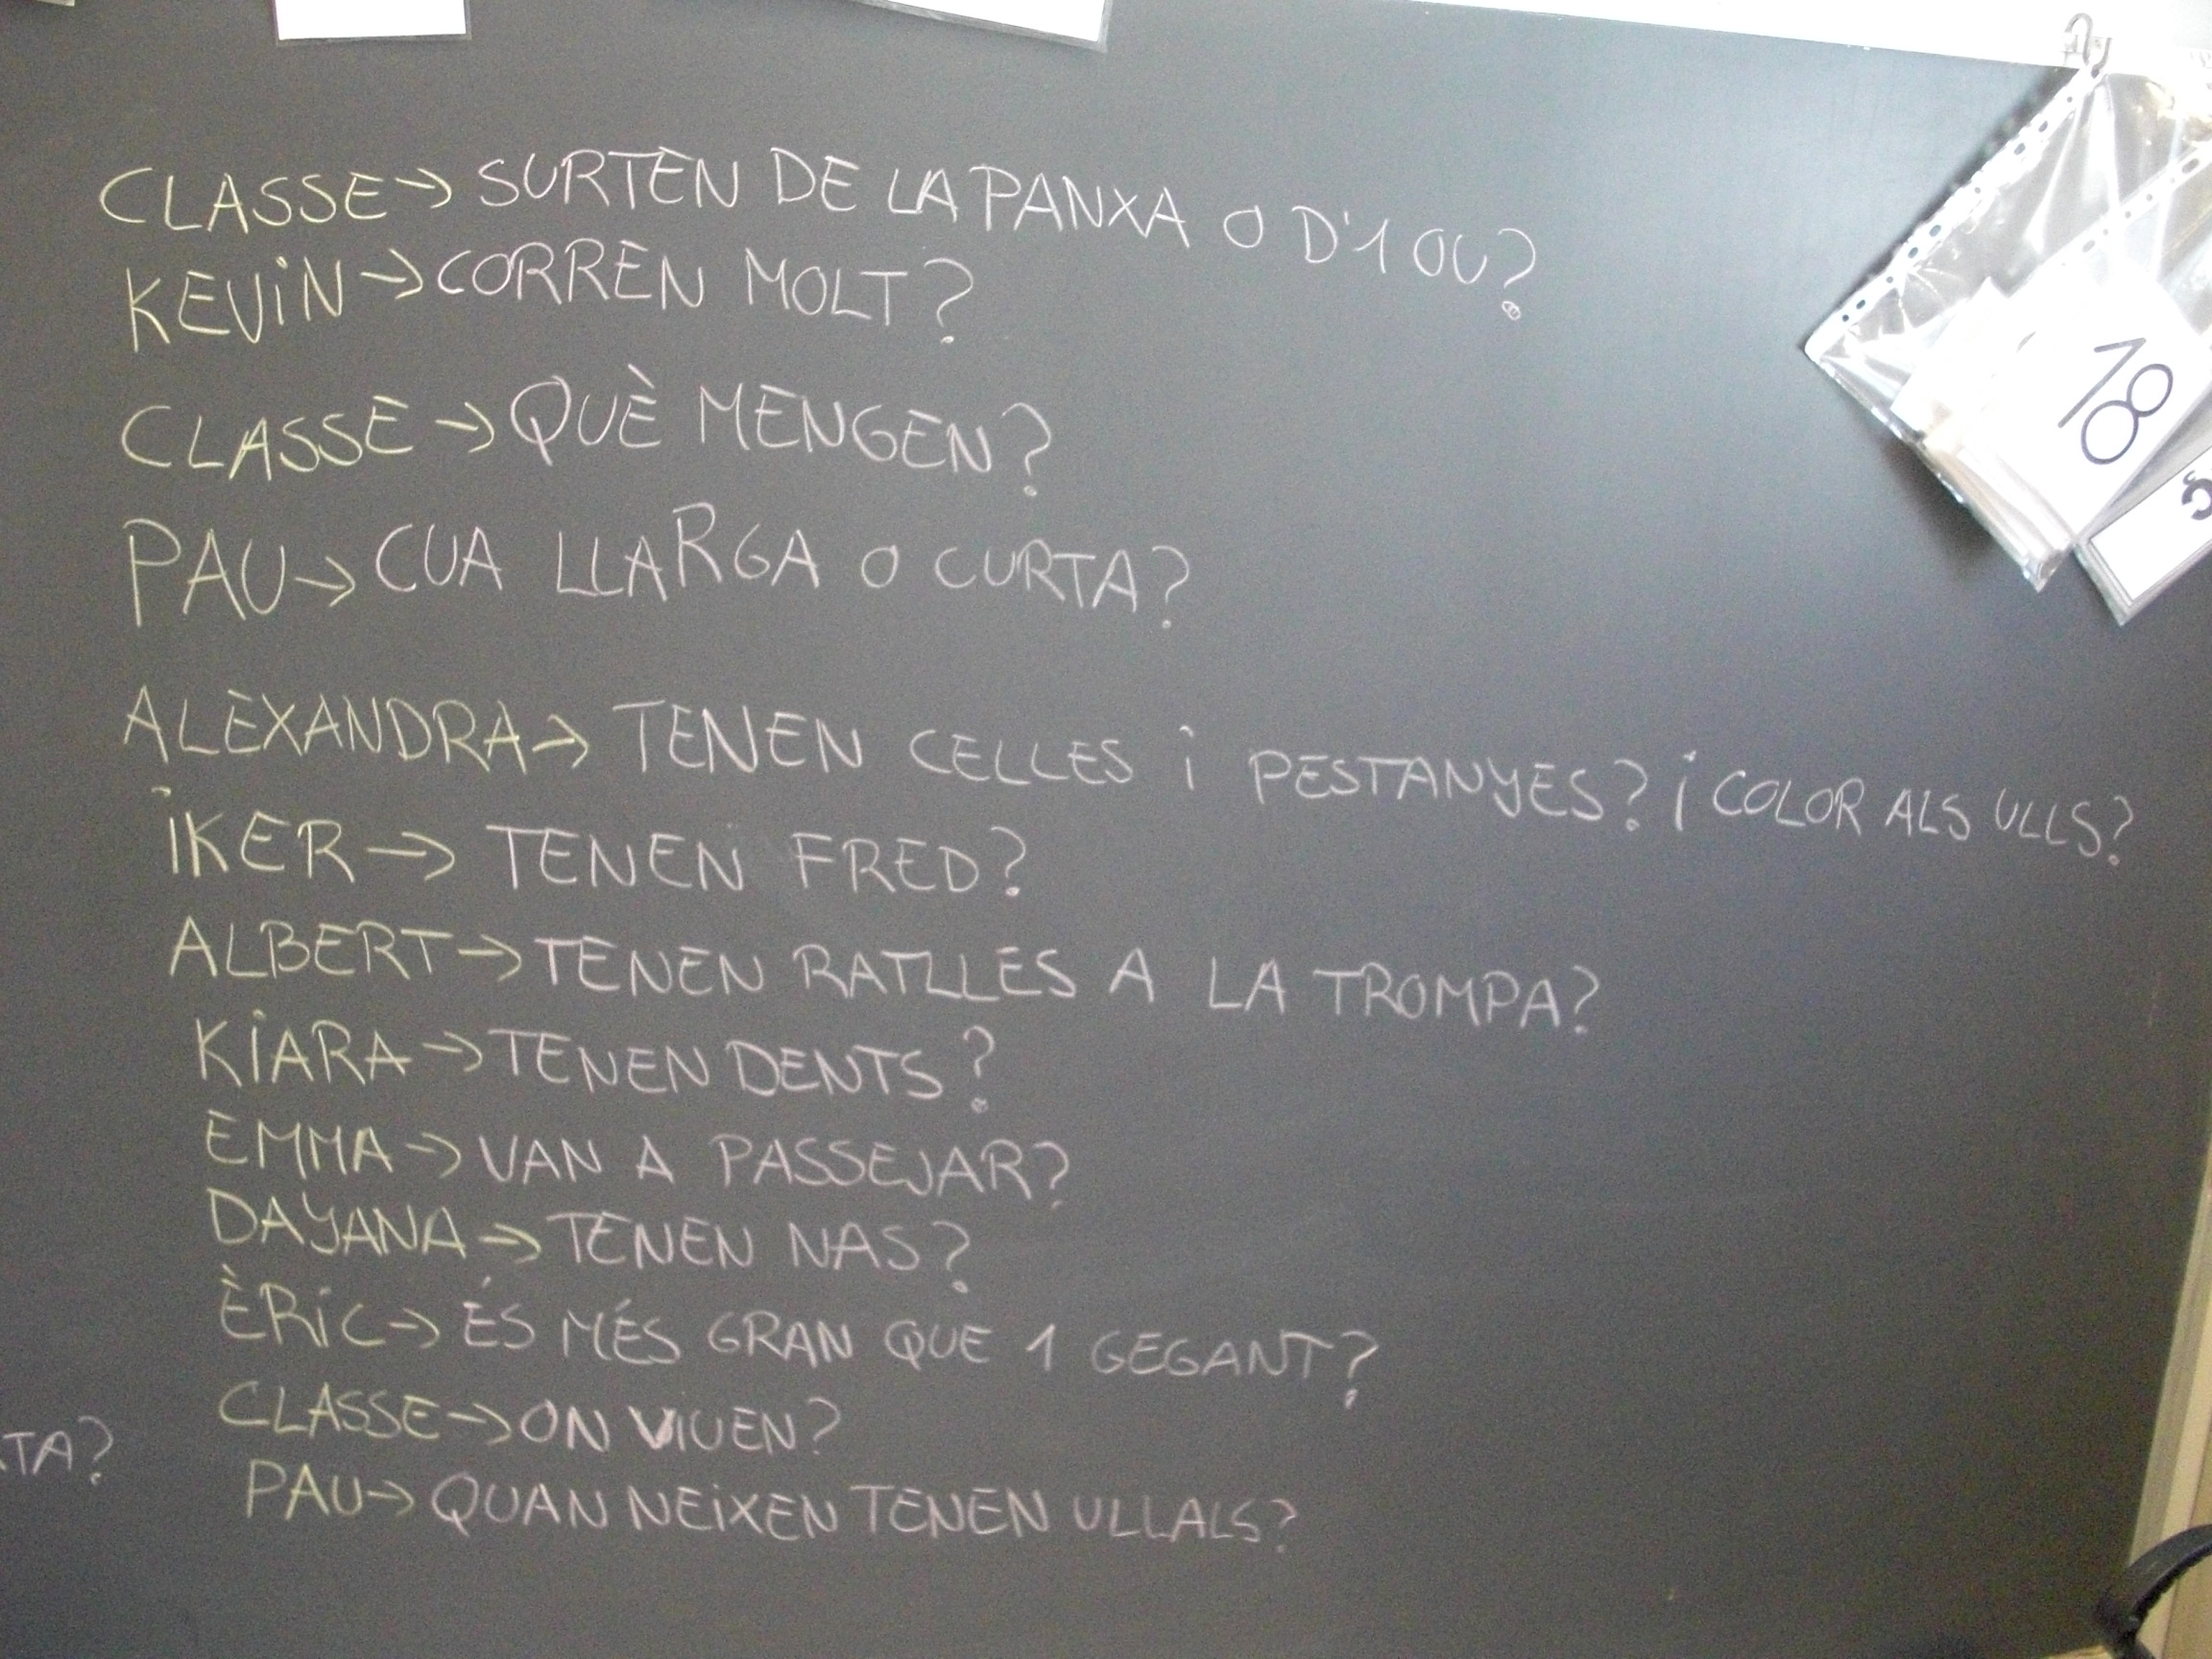 CLASSE → SURTEN DE LA PANXA O D'1 OU?
KEViN → CORREN MOLT?
CLASSE → QUÈ MENGEN?
PAU → CUA LLARGA O CURTA?
ALEXANDRA → TENEN CELLES i PESTANYES? i COLOR ALS ULLS?
iKER → TENEN FRED?
ALBERT → TENEN RATLLES A LA TROMPA?
KiARA → TENEN DENTS?
EMMA → VAN A PASSEJAR?
DAYANA → TENEN NAS?
ÈRiC → ÉS MÉS GRAN QUE 1 GEGANT?
CLASSE → ON ViUEN?
TA?
PAU → QUAN NEiXEN TENEN ULLALS?
18